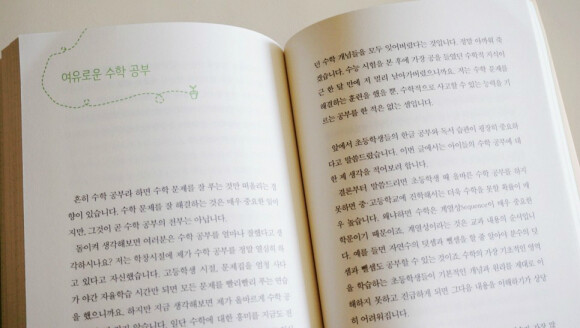 여유로운 수학 공부
흔히 수학 공부라 하면 수학 문제를 잘 푸는 것만 떠올리는 경
향이 있습니다. 수학 문제를 잘 해결하는 것은 매우 중요한 일이
지만, 그것이 곧 수학 공부의 전부는 아닙니다.
돌이켜 생각해보면 여러분은 수학 공부를 얼마나 잘했다고 생
각하시나요? 저는 학창시절에 제가 수학 공부를 정말 열심히 하
고 있다고 자신했습니다. 고등학생 시절, 문제집을 펼쳐
가 야간 자율학습 시간만 되면 모든 문제를 빨리빨리 푸는 연습
을 했으니까요. 하지만 지금 생각해보면 제가 올바르게 수학 공
수학에 대한 흥미를
던 수학 개념들을 모두 잊어버렸다는 것입니다. 정말 아까워 죽
겠습니다. 수능 시험을 본 후에 가장 공을 들였던 수학적 지식이
근 한 달 만에 저 멀리 날아가버렸으니까요. 저는 수학 문제를
해결하는 훈련을 했을 뿐, 수학적으로 사고할 수 있는 능력을 기
르는 공부를 한 적은 없는 셈입니다.
앞에서 초등학생들의 한글 공부와 독서 습관이 굉장히 중요하
다고 말씀드렸습니다. 이번 글에서는 아이들의 수학 공부에 대
한 제 생각을 적어보려 합니다.
결론부터 말씀드리면 초등학생 때 올바른 수학 공부를 하지
못하면 중·고등학교에 진학해서는 더욱 수학을 못할 확률이 매
우 높습니다. 왜냐하면 수학은 계열성(sequence)이 매우 중요한
학문이기 때문이죠. 계열성이라는 것은 교과 내용의 순서입니
다. 예를 들면 자연수의 덧셈과 뺄셈을 할 줄 알아야 분수의 덧
셈과 뺄셈도 공부할 수 있는 것이죠. 수학의 가장 기초적인 영역
을 학습하는 초등학생들이 기본적인 개념과 원리를 제대로 이
해하지 못하고 진급하게 되면 그다음 내용을 이해하기가 상당
히 어려워집니다.